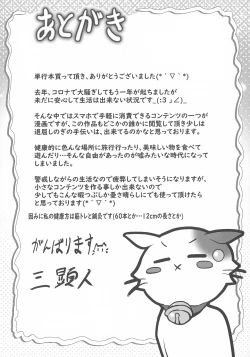 あとがき
単行本買って頂き、ありがとうございました(*´▽`*)
去年、コロナで大騒ぎしてもう一年が起ちましたが
未だに安心して生活は出来ない状況です_(:3 」∠)_
そんな中ではスマホで手軽に消費できるコンテンツの一つが
漫画ですが、この作品もどこかの誰かに閲覧して頂き少しは
退屈しのぎの手伝いは、出来てるのかなと思っております。
健康的に色んな場所に旅行行ったり、美味しい物を食べて
遊んだり・・・そんな自由があったのが嘘みたいな時代になって
しまいました。
警戒しながらの生活なので疲弊してしまいそうになりますが、
小さなコンテンツを作る事しか出来ないので
少しでもこんな暇つぶしか豊さしにでも使って頂けたら
と思っております(*´▽`*)
因みに私の健康方は筋トレと鍼灸です(60本とか…12cmの長さとか)
がんばります
三顕人